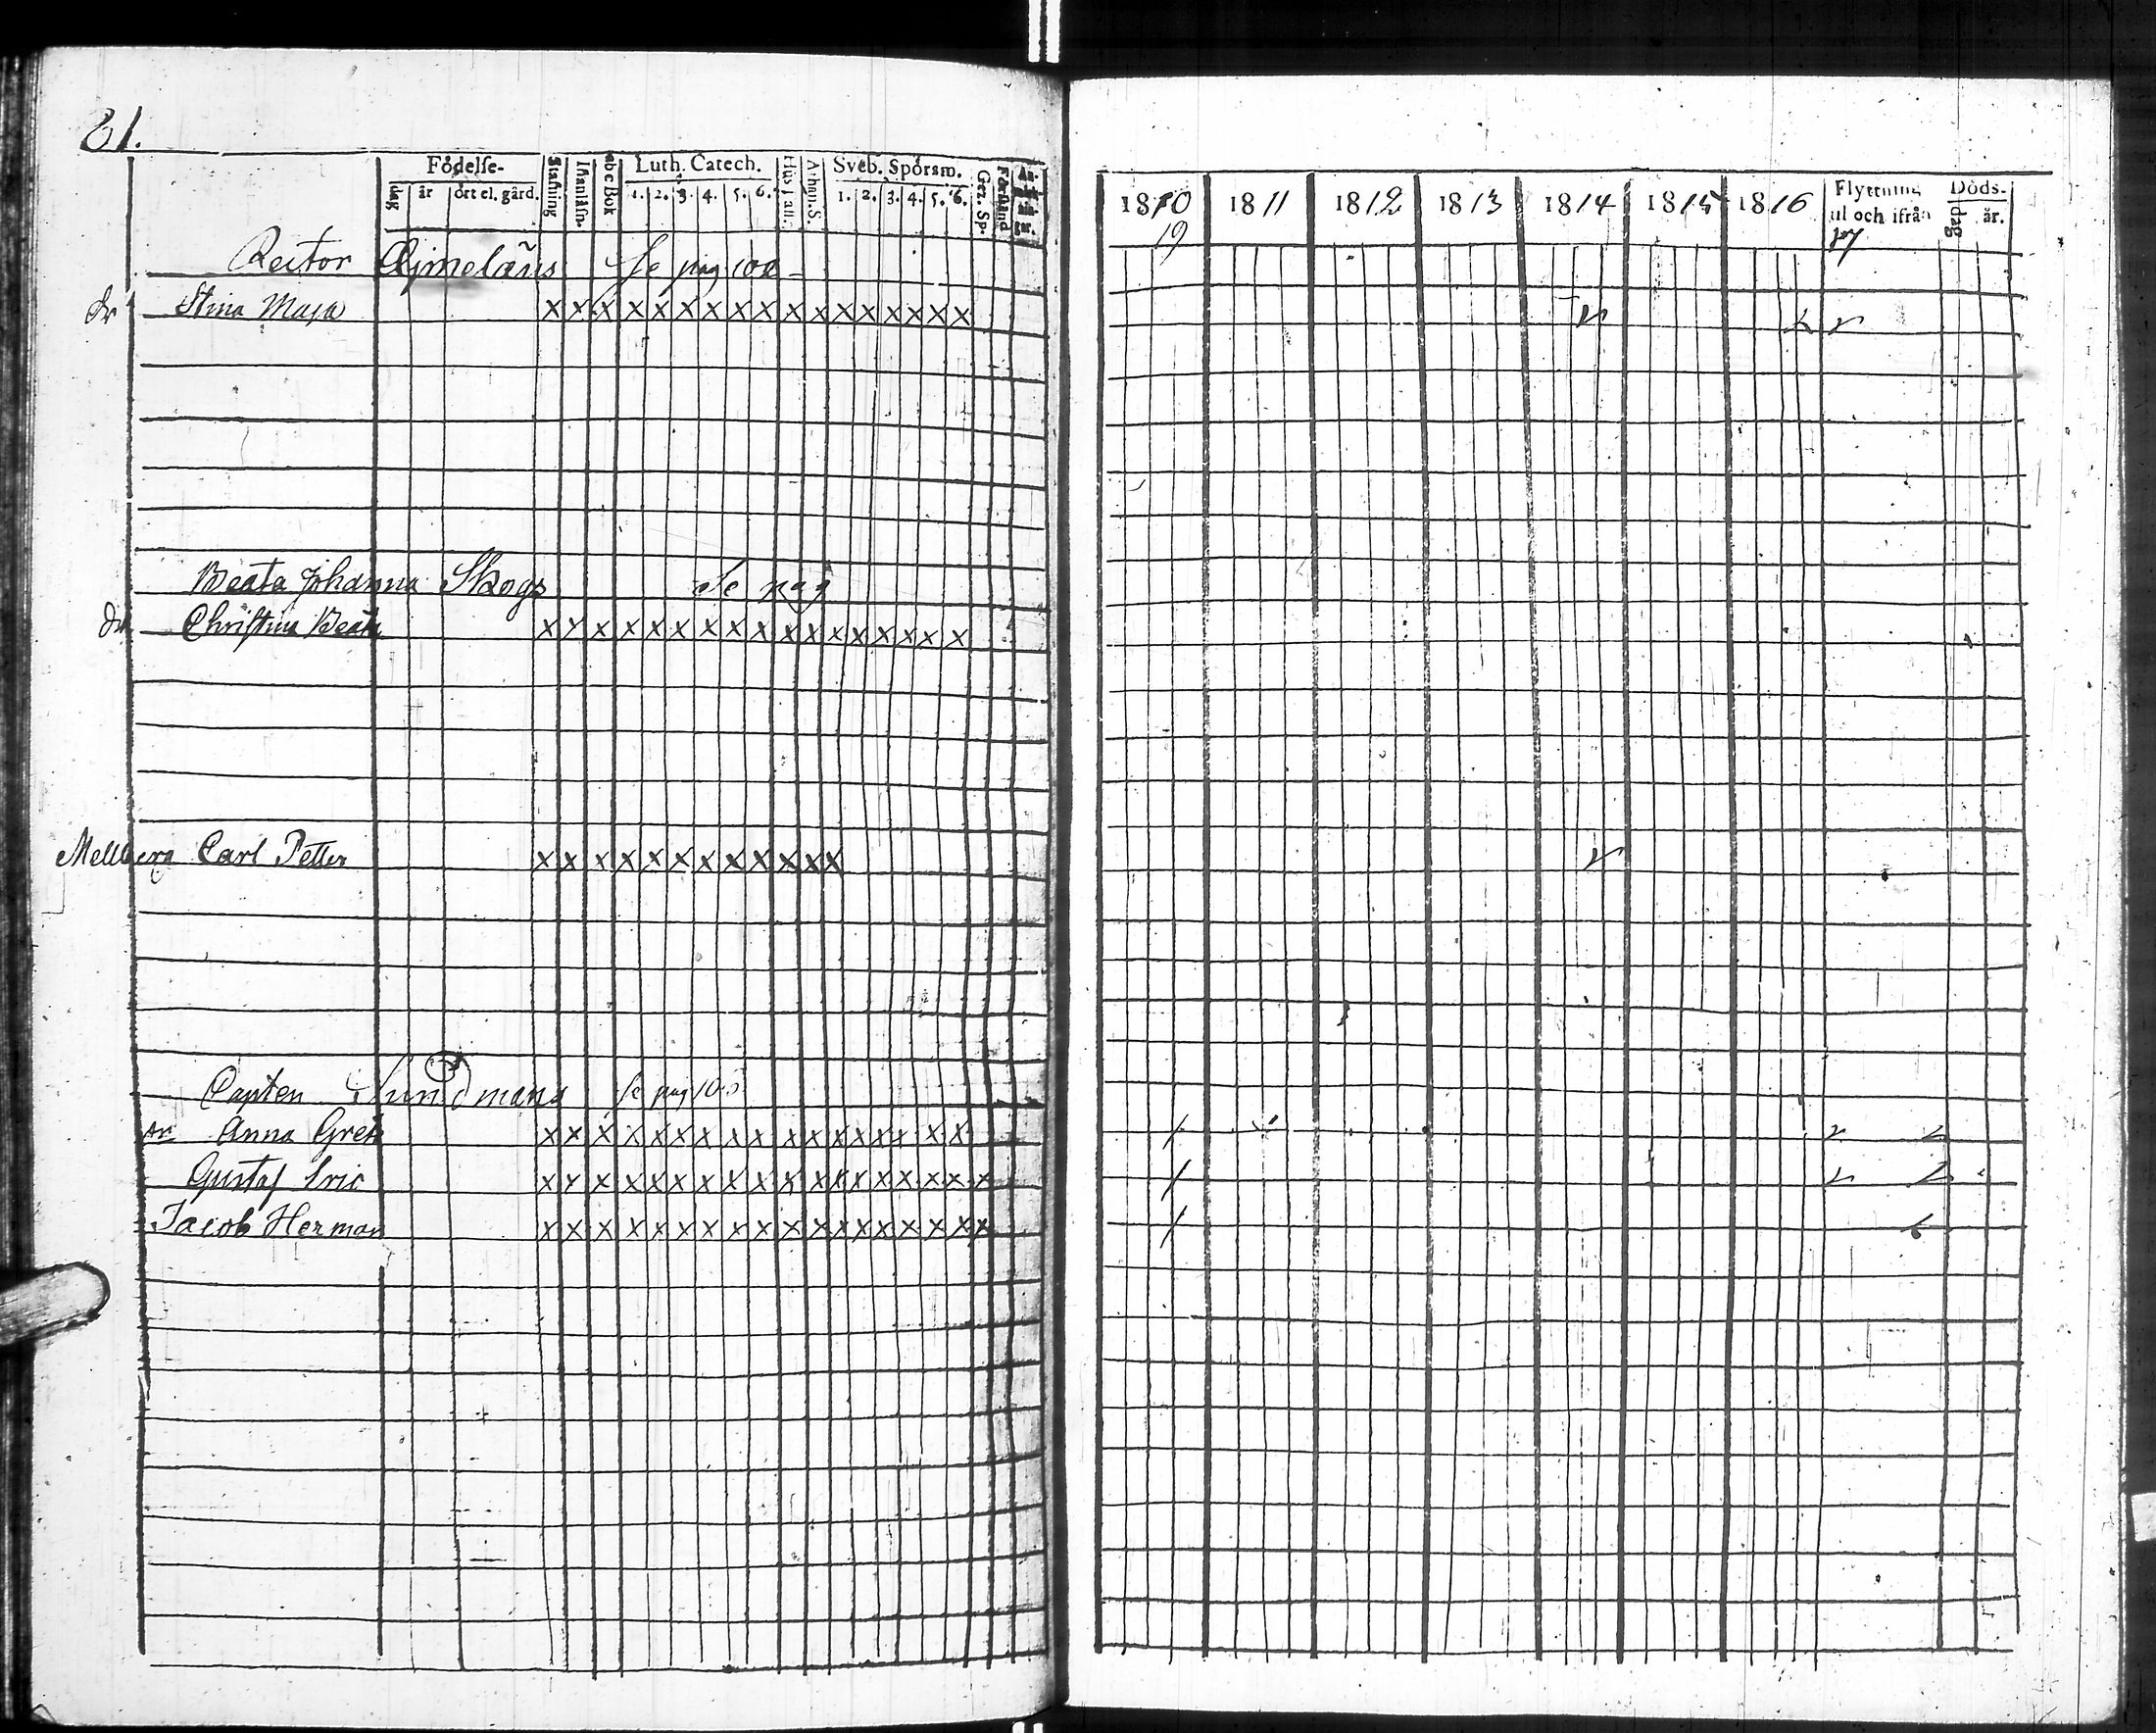 81.
Födelse-
dag år ort el. gård.
Stafning
Innanläsn.
abc Bok
Luth. Catech.
1. 2. 3. 4. 5. 6.
Athan. S.
Sveb. Spörsm.
1. 2. 3. 4. 5. 6.
Ger. Sp.
Förstånd
Rector Se pag
Dr Stina Maja x x x x x x x x x x x x x x x x x
Beata Johanna Skogs Se pag
Dr Christina Beata x x x x x x x x x x x x x x x x x
Mellberg Carl Petter x x x x x x x x x x x x
Capten Sundmans Se pag
Anna Greta x x x x x x x x x x x x x x x x x
Gustaf Eric x x x x x x x x x x x x x x x x x x
Jacob Herman x x x x x x x x x x x x x x x x x x
1810 1811 1812 1813 1814 1815 1816
19
Flyttning
til och ifrån
17
Döds-
dag år.